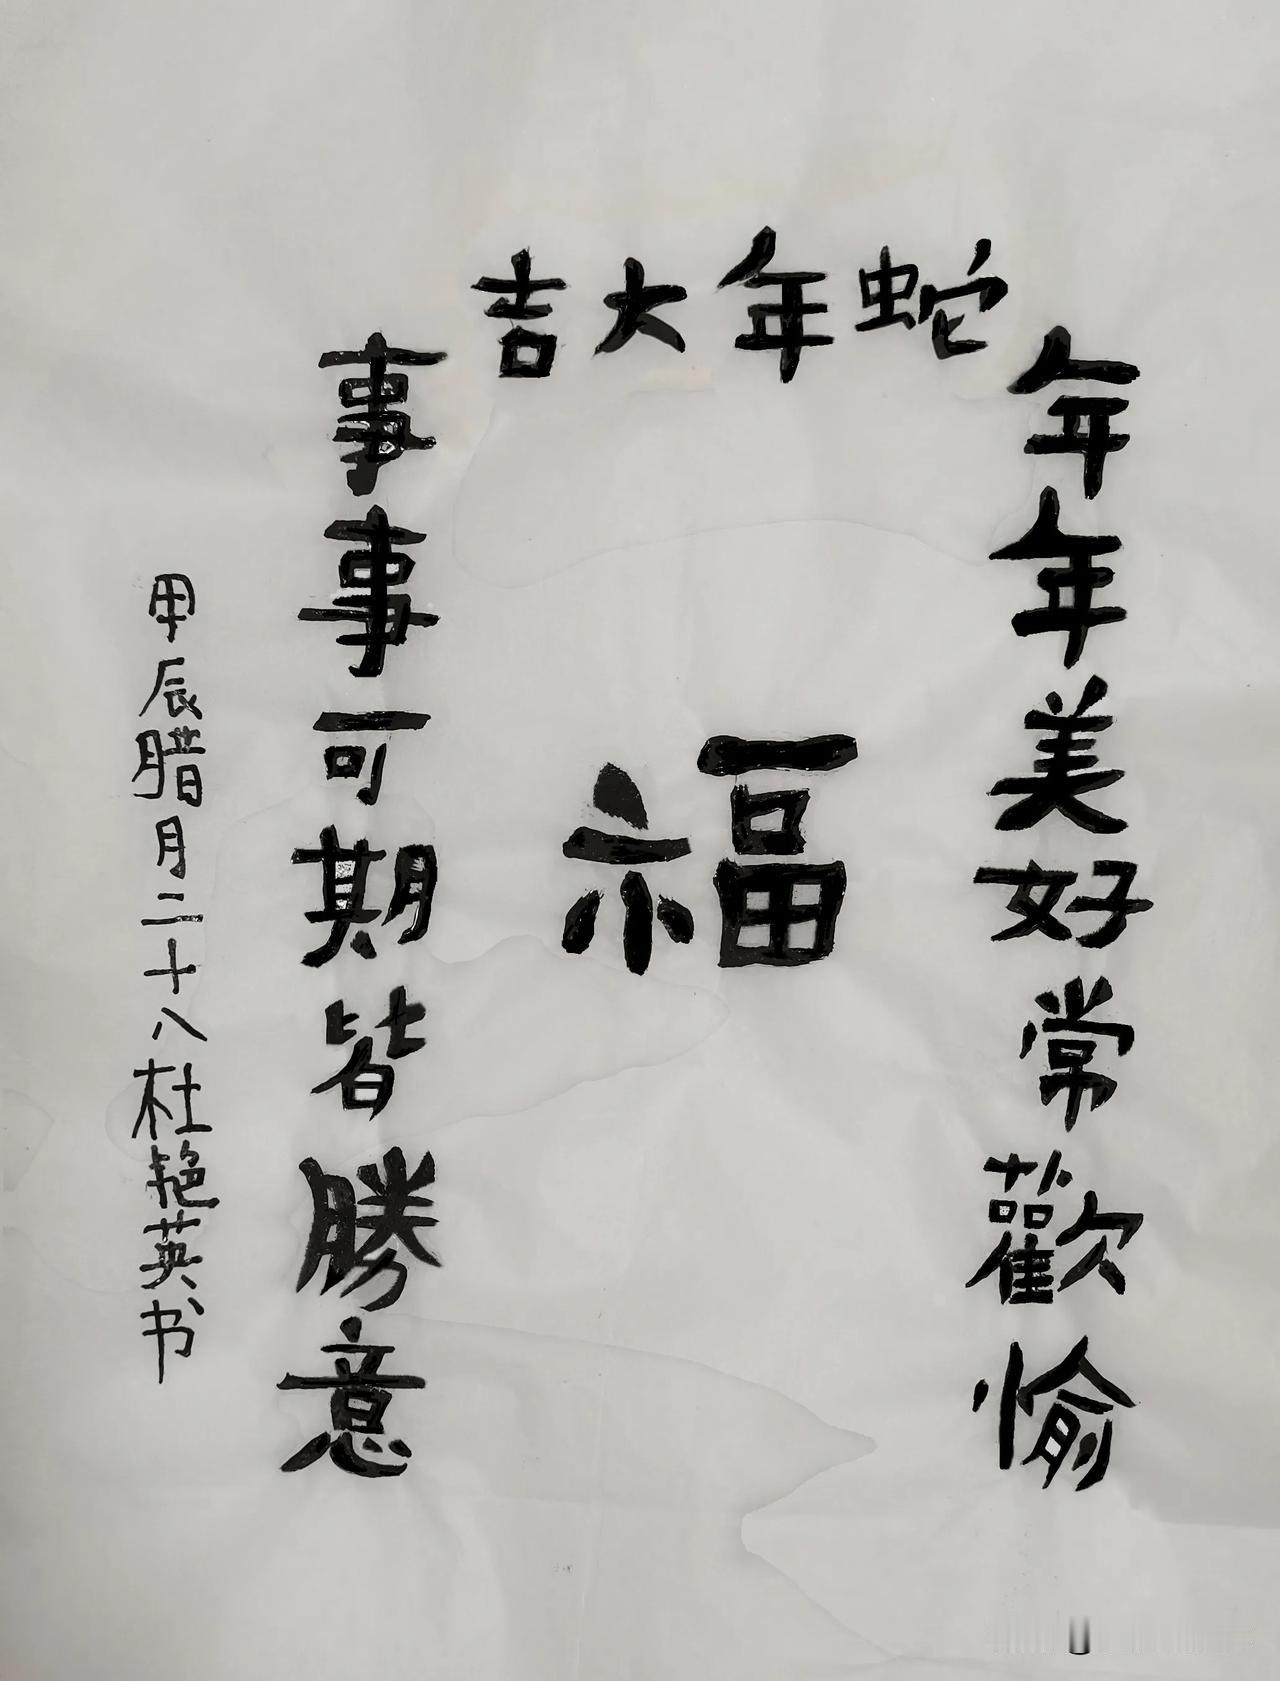 蛇年大吉
年年美好常歡愉
福
事事可期皆勝意
甲辰腊月二十八杜艳英书